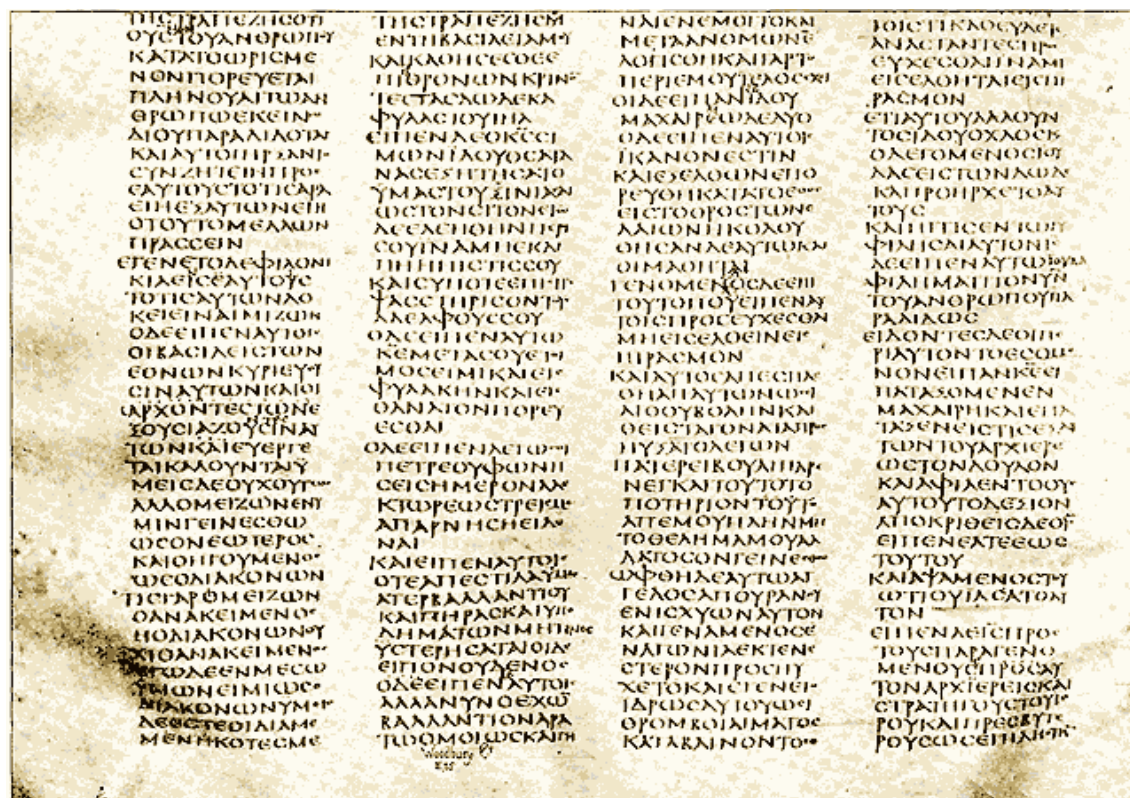 ΤΗCΤΡΑΠΕΖΗCΟΤΙ
ΟΥCΤΟΥΑΝΘΡΩΠΟΥ
ΚΑΤΑΤΟΩΡΙCΜΕ
ΝΟΝΠΟΡΕΥΕΤΑΙ
ΠΛΗΝΟΥΑΙΤΩΑΝ
ΘΡΩΠΩΕΚΕΙΝΩ
ΔΙΟΥΠΑΡΑΔΙΔΟΤΑΙ
ΚΑΙΑΥΤΟΙΗΡΞΑΝΤο
CΥΝΖΗΤΕΙΝΠΡΟC
ΕΑΥΤΟΥCΤΟΤΙCΑΡΑ
ΕΙΗΕΞΑΥΤΩΝ
ΟΤΟΥΤΟΜΕΛΛΩΝ
ΠΡΑCCΕΙΝ
ΕΓΕΝΕΤΟΔΕΦΙΛΟΝΙ
ΚΙΑΕΙCΕΑΥΤΟΥC
ΤΟΤΙCΑΥΤΩΝΔΟ
ΚΕΙΕΙΝΑΙΜΙΖΩΝ
ΟΔΕΕΙΠΕΝΑΥΤΟΙC
ΟΙΒΑCΙΛΕΙCΤΩΝ
ΕΘΝΩΝΚΥΡΙΕΥΟΥ
CΙΝΑΥΤΩΝΚΑΙΟΙ
ΑΡΧΟΝΤΕCΤΩΝΕ
ΞΟΥCΙΑΖΟΥCΙΝΑΥ
ΤΩΝΚΑΙΕΥΕΡΓΕ
ΤΑΙΚΑΛΟΥΝΤΑΙΫ
ΜΕΙCΔΕΟΥΧΟΥΤΩC
ΑΛΛΟΜΕΙΖΩΝΕΝΫ
ΜΙΝΓΕΙΝΕCΘΩ
ΩCΟΝΕΩΤΕΡΟC
ΚΑΙΟΗΓΟΥΜΕΝΟC
ΩCΟΔΙΑΚΟΝΩΝ
ΤΙCΓΑΡΟΜΕΙΖΩΝ
ΟΑΝΑΚΕΙΜΕΝΟC
ΗΟΔΙΑΚΟΝΩΝΟΥ
ΧΙΟΑΝΑΚΕΙΜΕΝΟC
ΕΓΩΔΕΕΝΜΕCΩ
ΫΜΩΝΕΙΜΙΩCΟ
ΔΙΑΚΟΝΩΝΥΜΕΙC
ΔΕΕCΤΕΟΙΔΙΑΜΕ
ΜΕΝΗΚΟΤΕCΜΕ
ΤΗCΤΡΑΠΕΖΗCΜΟΥ
ΕΝΤΗΒΑCΙΛΕΙΑΜΟΥ
ΚΑΙΚΑΘΗCΕCΘΕΕ
ΠΙΘΡΟΝΩΝΚΡΙΝΟ
ΤΕCΤΑCΔΩΔΕΚΑ
ΦΥΛΑCΤΟΥΙΗΛ
ΕΙΠΕΝΔΕΟΚCCΙ
ΜΩΝΙΔΟΥΟCΑΤΑ
ΝΑCΕΞΗΤΗCΑΤΟ
ΫΜΑCΤΟΥCΙΝΙΑCΑΙ
ΩCΤΟΝCΙΤΟΝΕΓΩ
ΔΕΕΔΕΗΘΗΝΠΕΡΙ
CΟΥΙΝΑΜΗΕΚΛΙ
ΠΗΗΠΙCΤΙCCΟΥ
ΚΑΙCΥΠΟΤΕΕΠΙCΤΡΕ
ΨΑCCΤΗΡΙCΟΝΤΟΥC
ΑΔΕΛΦΟΥCCΟΥ
ΟΔΕΕΙΠΕΝΑΥΤΩ
ΚΕΜΕΤΑCΟΥΕΤΟΙ
ΜΟCΕΙΜΙΚΑΙΕΙC
ΦΥΛΑΚΗΝΚΑΙΕΙC
ΘΑΝΑΤΟΝΠΟΡΕΥ
ΕCΘΑΙ
ΟΔΕΕΙΠΕΝΛΕΓΩCΟΙ
ΠΕΤΡΕΟΥΦΩΝΗ
CΕΙCΗΜΕΡΟΝΑΛΕ
ΚΤΩΡΕΩCΤΡΕΙCΜΕ
ΑΠΑΡΝΗCΗΕΙΔΕ
ΝΑΙ
ΚΑΙΕΙΠΕΝΑΥΤΟΙC
ΟΤΕΑΠΕCΤΙΛΑΫΜΑC
ΑΤΕΡΒΑΛΛΑΝΤΙΟΥ
ΚΑΙΠΗΡΑCΚΑΙΥΠΟ
ΔΗΜΑΤΩΝΜΗΤΙΝΟC
ΥCΤΕΡΗCΑΤΑΙΟΙΔΕ
ΕΙΠΟΝΟΥΔΕΝΟC
ΟΔΕΕΙΠΕΝΑΥΤΟΙC
ΑΛΛΑΝΥΝΟΕΧΩ
ΒΑΛΛΑΝΤΙΟΝΑΡΑ
ΤΩΟΜΟΙΩCΚΑΙΠΗ
ΝΑΙΕΝΕΜΟΙΤΟΚΑΙ
ΜΕΤΑΑΝΟΜΩΝΕ
ΛΟΓΙCΘΗΚΑΙΓΑΡΤΟ
ΠΕΡΙΕΜΟΥΤΕΛΟCΕΧΙ
ΟΙΔΕΕΙΠΑΝΙΔΟΥ
ΜΑΧΑΙΡΕΩΔΕΔΥΟ
ΟΔΕΕΙΠΕΝΑΥΤΟΙC
ΙΚΑΝΟΝΕCΤΙΝ
ΚΑΙΕΞΕΛΘΩΝΕΠΟ
ΡΕΥΘΗΚΑΤΑΤΟΕΘΟC
ΕΙCΤΟΟΡΟCΤΩΝΕ
ΛΑΙΩΝΗΚΟΛΟΥ
ΘΗCΑΝΔΕΑΥΤΩΚΑΙ
ΟΙΜΑΘΗΤΑΙ
ΓΕΝΟΜΕΝΟCΔΕΕΠΙ
ΤΟΥΤΟΠΟΥΕΙΠΕΝΑΥ
ΤΟΙCΠΡΟCΕΥΧΕCΘΑΙ
ΜΗΕΙCΕΛΘΕΙΝΕΙC
ΠΙΡΑCΜΟΝ
ΚΑΙΑΥΤΟCΑΠΕCΠΑ
CΘΗΑΠΑΥΤΩΝΩCΙ
ΛΙΘΟΥΒΟΛΗΝΚΑΙ
ΘΕΙCΤΑΓΟΝΑΤΑΠΡΟC
ΗΥΞΑΤΟΛΕΓΩΝ
ΠΑΤΕΡΕΙΒΟΥΛΙΠΑΡΕ
ΝΕΓΚΑΙΤΟΥΤΟΤΟ
ΠΟΤΗΡΙΟΝΤΟΥΤΟ
ΑΠΕΜΟΥΠΛΗΝΜΗ
ΤΟΘΕΛΗΜΑΜΟΥΑΛ
ΛΑΤΟCΟΝΓΕΙΝΕCΘΩ
ΩΦΘΗΔΕΑΥΤΩΑΓ
ΓΕΛΟCΑΠΟΥΡΑΝΟΥ
ΕΝΙCΧΥΩΝΑΥΤΟΝ
ΚΑΙΓΕΝΑΜΕΝΟCΕ
ΝΑΓΩΝΙΑΕΚΤΕΝΕ
CΤΕΡΟΝΠΡΟCΗΥ
ΧΕΤΟΚΑΙΕΓΕΝΕΤΟ
ΙΔΡΩCΑΥΤΟΥΩCΙ
ΘΡΟΜΒΟΙΑΙΜΑΤΟC
ΚΑΤΑΒΑΙΝΟΝΤΟC
ΤΟΙCΤΙΚΑΘΕΥΔΕΤΕ
ΑΝΑCΤΑΝΤΕCΠΡΟC
ΕΥΧΕCΘΑΙΙΝΑΜΗ
ΕΙCΕΛΘΗΤΑΙΕΙCΠΙ
ΡΑCΜΟΝ
ΕΤΙΑΥΤΟΥΛΑΛΟΥΝ
ΤΟCΙΔΟΥΟΧΛΟCΚΑΙ
ΟΛΕΓΟΜΕΝΟCΙΟΥ
ΔΑCΕΙCΤΩΝΔΩΔΕ
ΚΑΠΡΟΗΡΧΕΤΟΑΥ
ΤΟΥC
ΚΑΙΗΓΓΙCΕΝΤΩΙΥ
ΦΙΛΗCΑΙΑΥΤΟΝΙC
ΔΕΕΙΠΕΝΑΥΤΩΙΟΥΔΑ
ΦΙΛΗΜΑΤΙΤΟΝΥΙΟΝ
ΤΟΥΑΝΘΡΩΠΟΥΠΑ
ΡΑΔΙΔΩC
ΕΙΔΟΝΤΕCΔΕΟΙΠΕ
ΡΙΑΥΤΟΝΤΟΕCΟΜΕ
ΝΟΝΕΙΠΑΝΚΕΕΙ
ΠΑΤΑΞΟΜΕΝΕΝ
ΜΑΧΑΙΡΗΚΑΙΕΠΑ
ΤΑΞΕΝΕΙCΤΙCΕΞΑΥ
ΤΩΝΤΟΥΑΡΧΙΕΡΕ
ΩCΤΟΝΔΟΥΛΟΝ
ΚΑΙΑΦΙΛΕΝΤΟΟΥC
ΑΥΤΟΥΤΟΔΕΞΙΟΝ
ΑΠΟΚΡΙΘΕΙCΔΕΟΙC
ΕΙΠΕΝΕΑΤΕΕΩC
ΤΟΥΤΟΥ
ΚΑΙΑΨΑΜΕΝΟCΤΟΥ
ΩΤΙΟΥΙΑCΑΤΟΑΥ
ΤΟΝ
ΕΙΠΕΝΔΕΙCΠΡΟC
ΤΟΥCΠΑΡΑΓΕΝΟ
ΜΕΝΟΥCΠΡΟCΑΥ
ΤΟΝΑΡΧΙΕΡΕΙCΚΑΙ
CΤΡΑΤΗΓΟΥCΤΟΥΙΕ
ΡΟΥΚΑΙΠΡΕCΒΥΤΕ
ΡΟΥCΩCΕΠΙΛΗCΤΗ